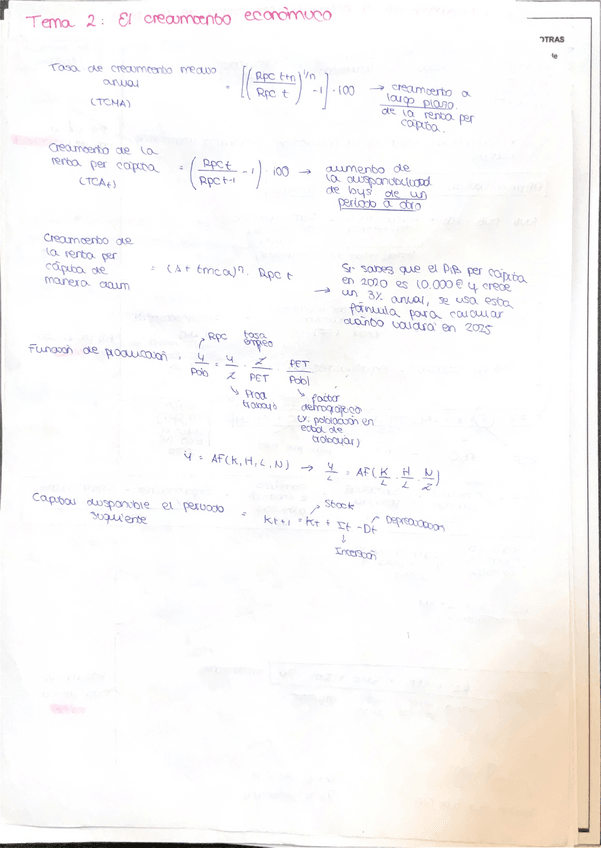 Tema 2: El crecimiento económico
OTRAS
Tasa de crecimiento medio anual (TCMA) = [(Rpc t+n / Rpc t)^1/n - 1] · 100 → crecimiento a largo plazo de la renta per cápita.
Crecimiento de la renta per cápita (TCAt) = (Rpc t / Rpc t-1 - 1) · 100 → aumento de la disponibilidad de bys de un periodo a otro
Crecimiento de la renta per cápita de manera acum = (1 + tmca)^n · Rpc t
→ Si sabes que el PIB per cápita
en 2020 es 10.000 € y crece
un 3% anual, se usa esta
fórmula para calcular
cuánto valdrá en 2025
Rpc
tasa empleo
Función de producción. Y / Pob = Y / L · L / PET PET / Pobl
Prod trabajo
factor
demográfico
(x. población en
edad de
trabajar)
Y = AF(K, H, L, N) → Y / L = AF(K / L · H / L · N / L)
Stock
Capital disponible el periodo siguiente = Kt+1 = Kt + It - Dt
Depreciación
Inversión